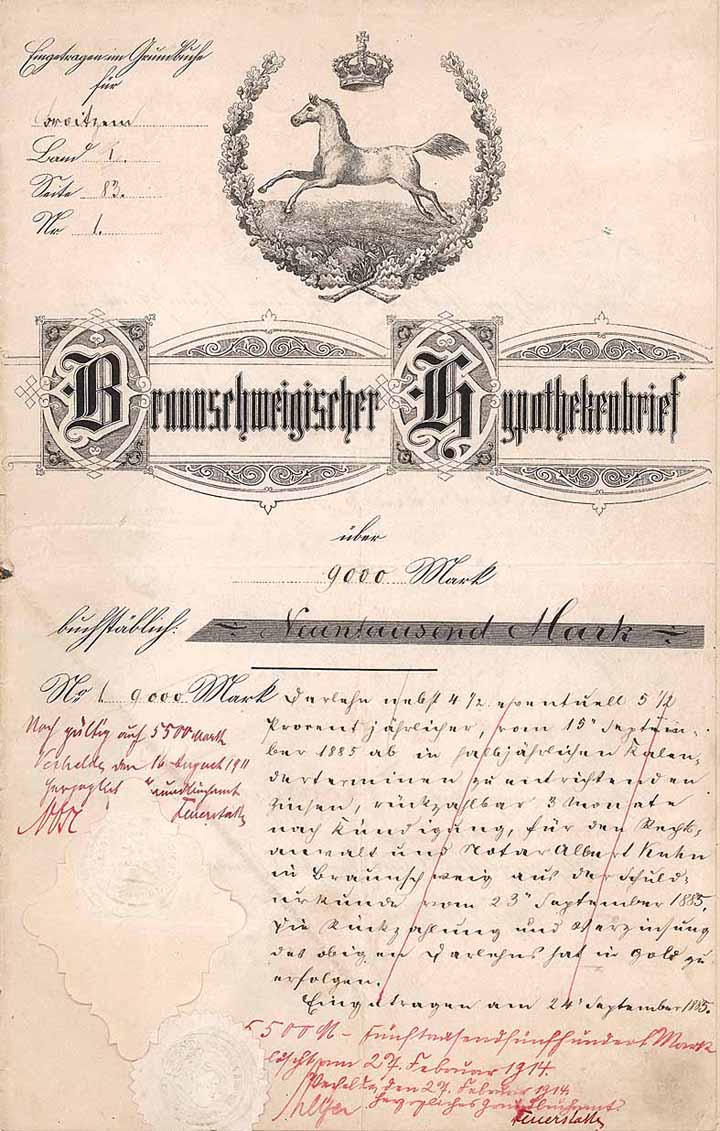 Eingetragen im Grundbuche
für
Broitzem
Band I.
Seite 83.
No 1.
Braunschweigischer Hypothekenbrief
über
9000 Mark
buchstäblich: Neuntausend Mark
No 1. 9000 Mark Darlehn nebst 4 1/2 eventuell 5 1/2
Procent jährlicher, vom 15n Septem-
ber 1885 ab in halbjährlichen Kalen-
derterminen zu entrichtenden
Zinsen, rückzahlbar 3 Monate
nach Kündigung, für den Rechts-
anwalt und Notar Albert Huhn
in Braunschweig aus der Schuld-
urkunde vom 23n September 1885.
Die Rückzahlung und Verzinsung
des obigen Darlehns hat in Gold zu
erfolgen.
Eingetragen am 24' September 1885.
Noch gültig auf 5500 Mark
Vechelde, den 16 August 1911
Herzoglich
Feuerstack
5500 M - Fünftausendfünfhundert Mark
gelöscht am 27. Februar 1914.
Vechelde, den 27. Februar 1914.
Herzogliches Grundbuchamt.
Feuerstack